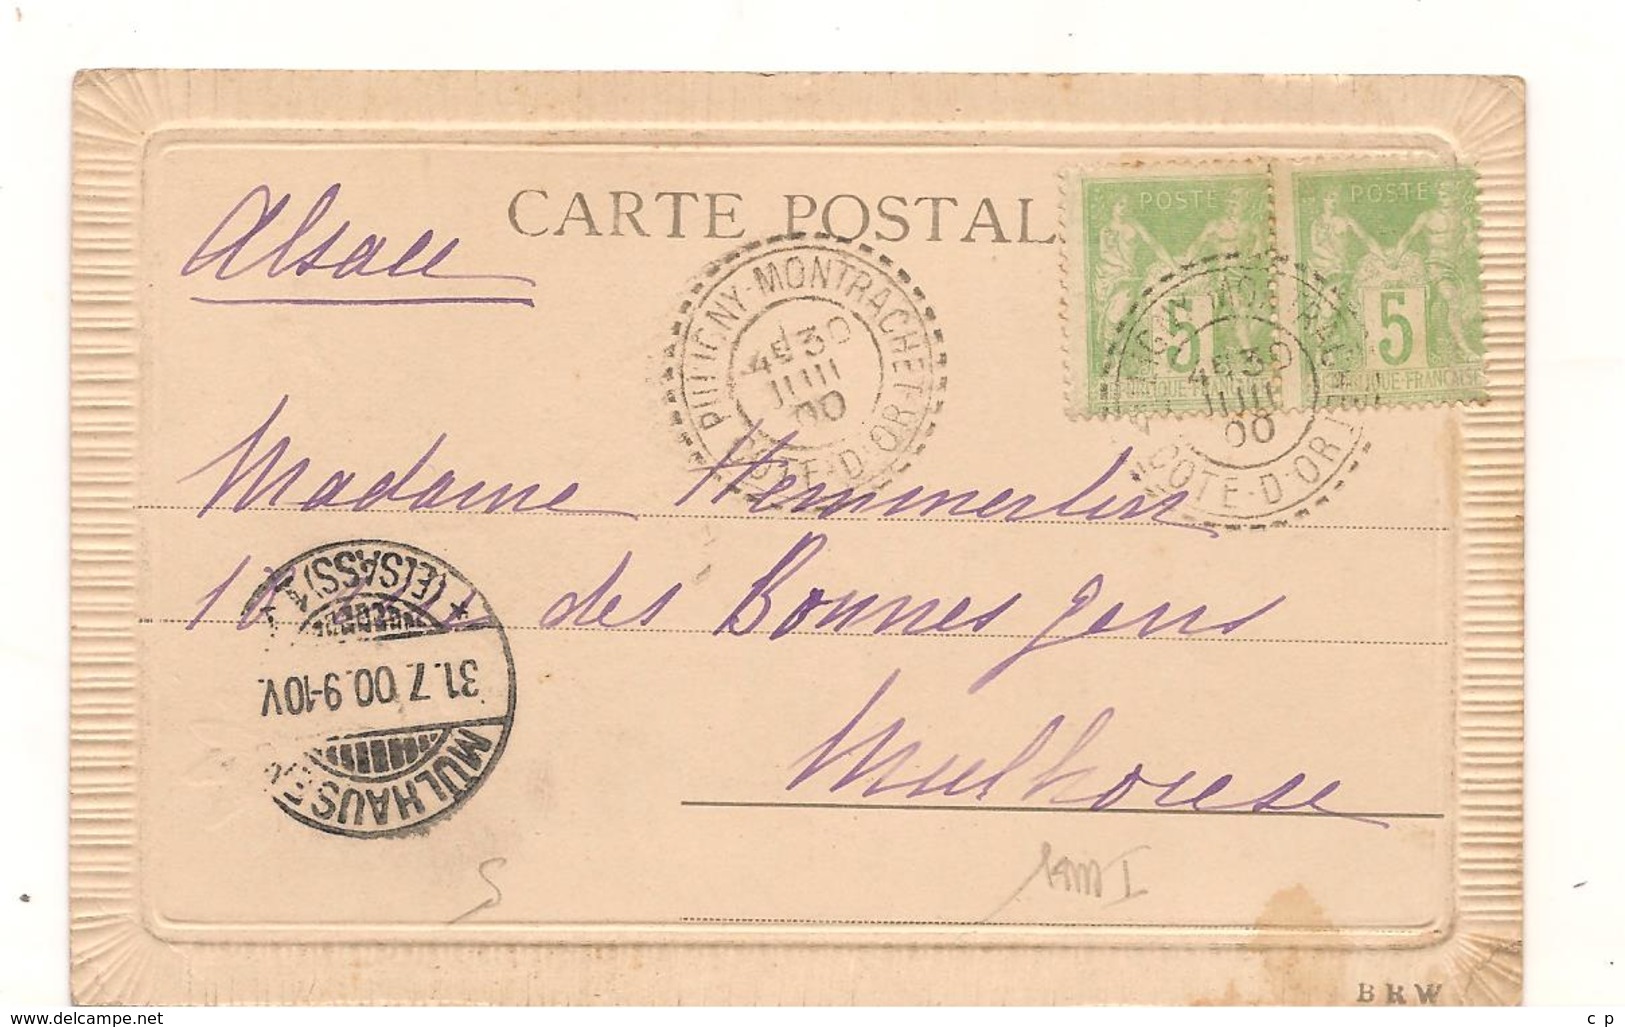 CARTE POSTAL
Alsace
POSTE
5
POSTE
5
RÉPUBLIQUE-FRANÇAISE
PULIGNY-MONTRACHET
4E 30
JUIL
00
COTE-D'OR
MONTRACHET
4E 30
JUIL
00
COTE-D'OR
Madame Hemmerlin
des Bonnes gens
Mulhouse
MÜLHAUSEN
31.7.00.9-10V.
(ELSASS)1
BRW
www.delcampe.net
c p